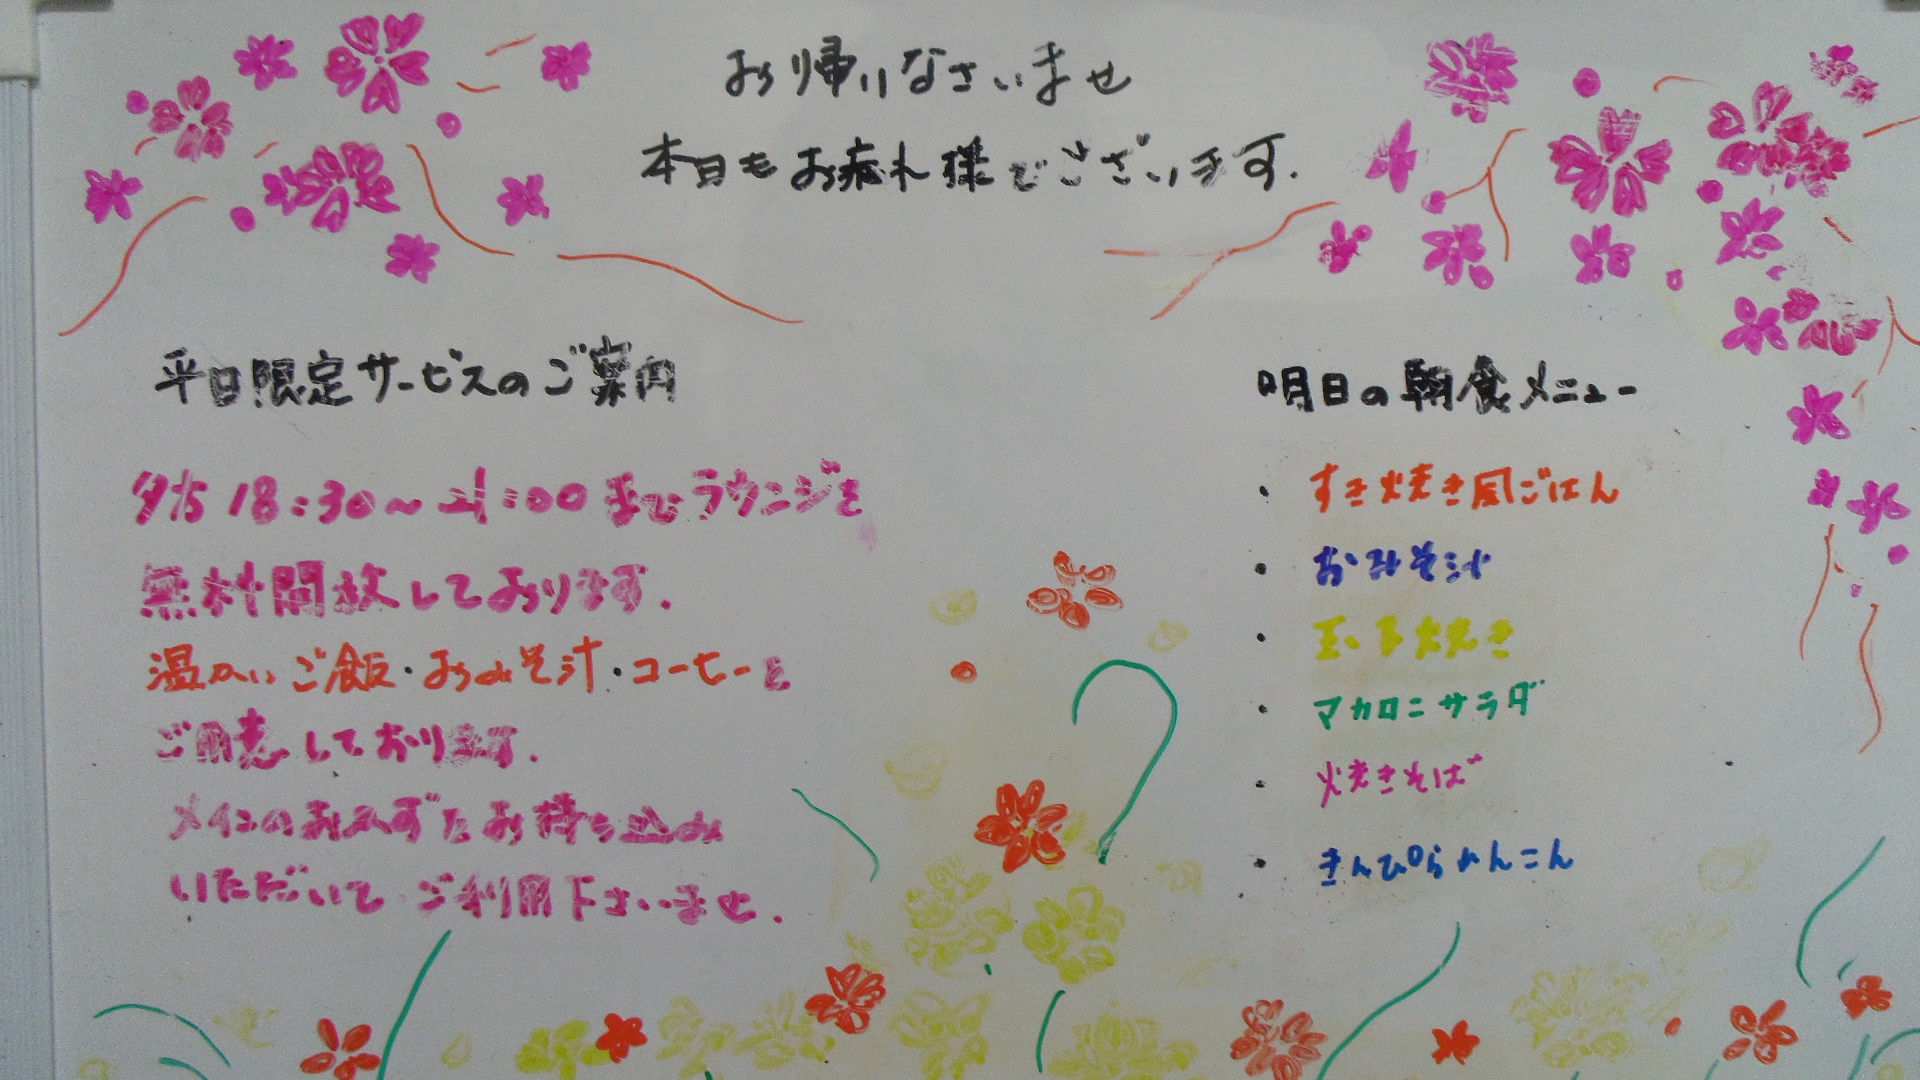 お帰りなさいませ
本日もお疲れ様でございます.
平日限定サービスのご案内
夕方 18:30～21:00までラウンジを
無料開放しております.
温かいご飯・おみそ汁・コーヒーを
ご用意しております.
メインのおかずをお持ち込み
いただいて ご利用下さいませ.
明日の朝食メニュー
・すき焼き風ごはん
・おみそ汁
・玉子焼き
・マカロニサラダ
・焼きそば
・きんぴられんこん